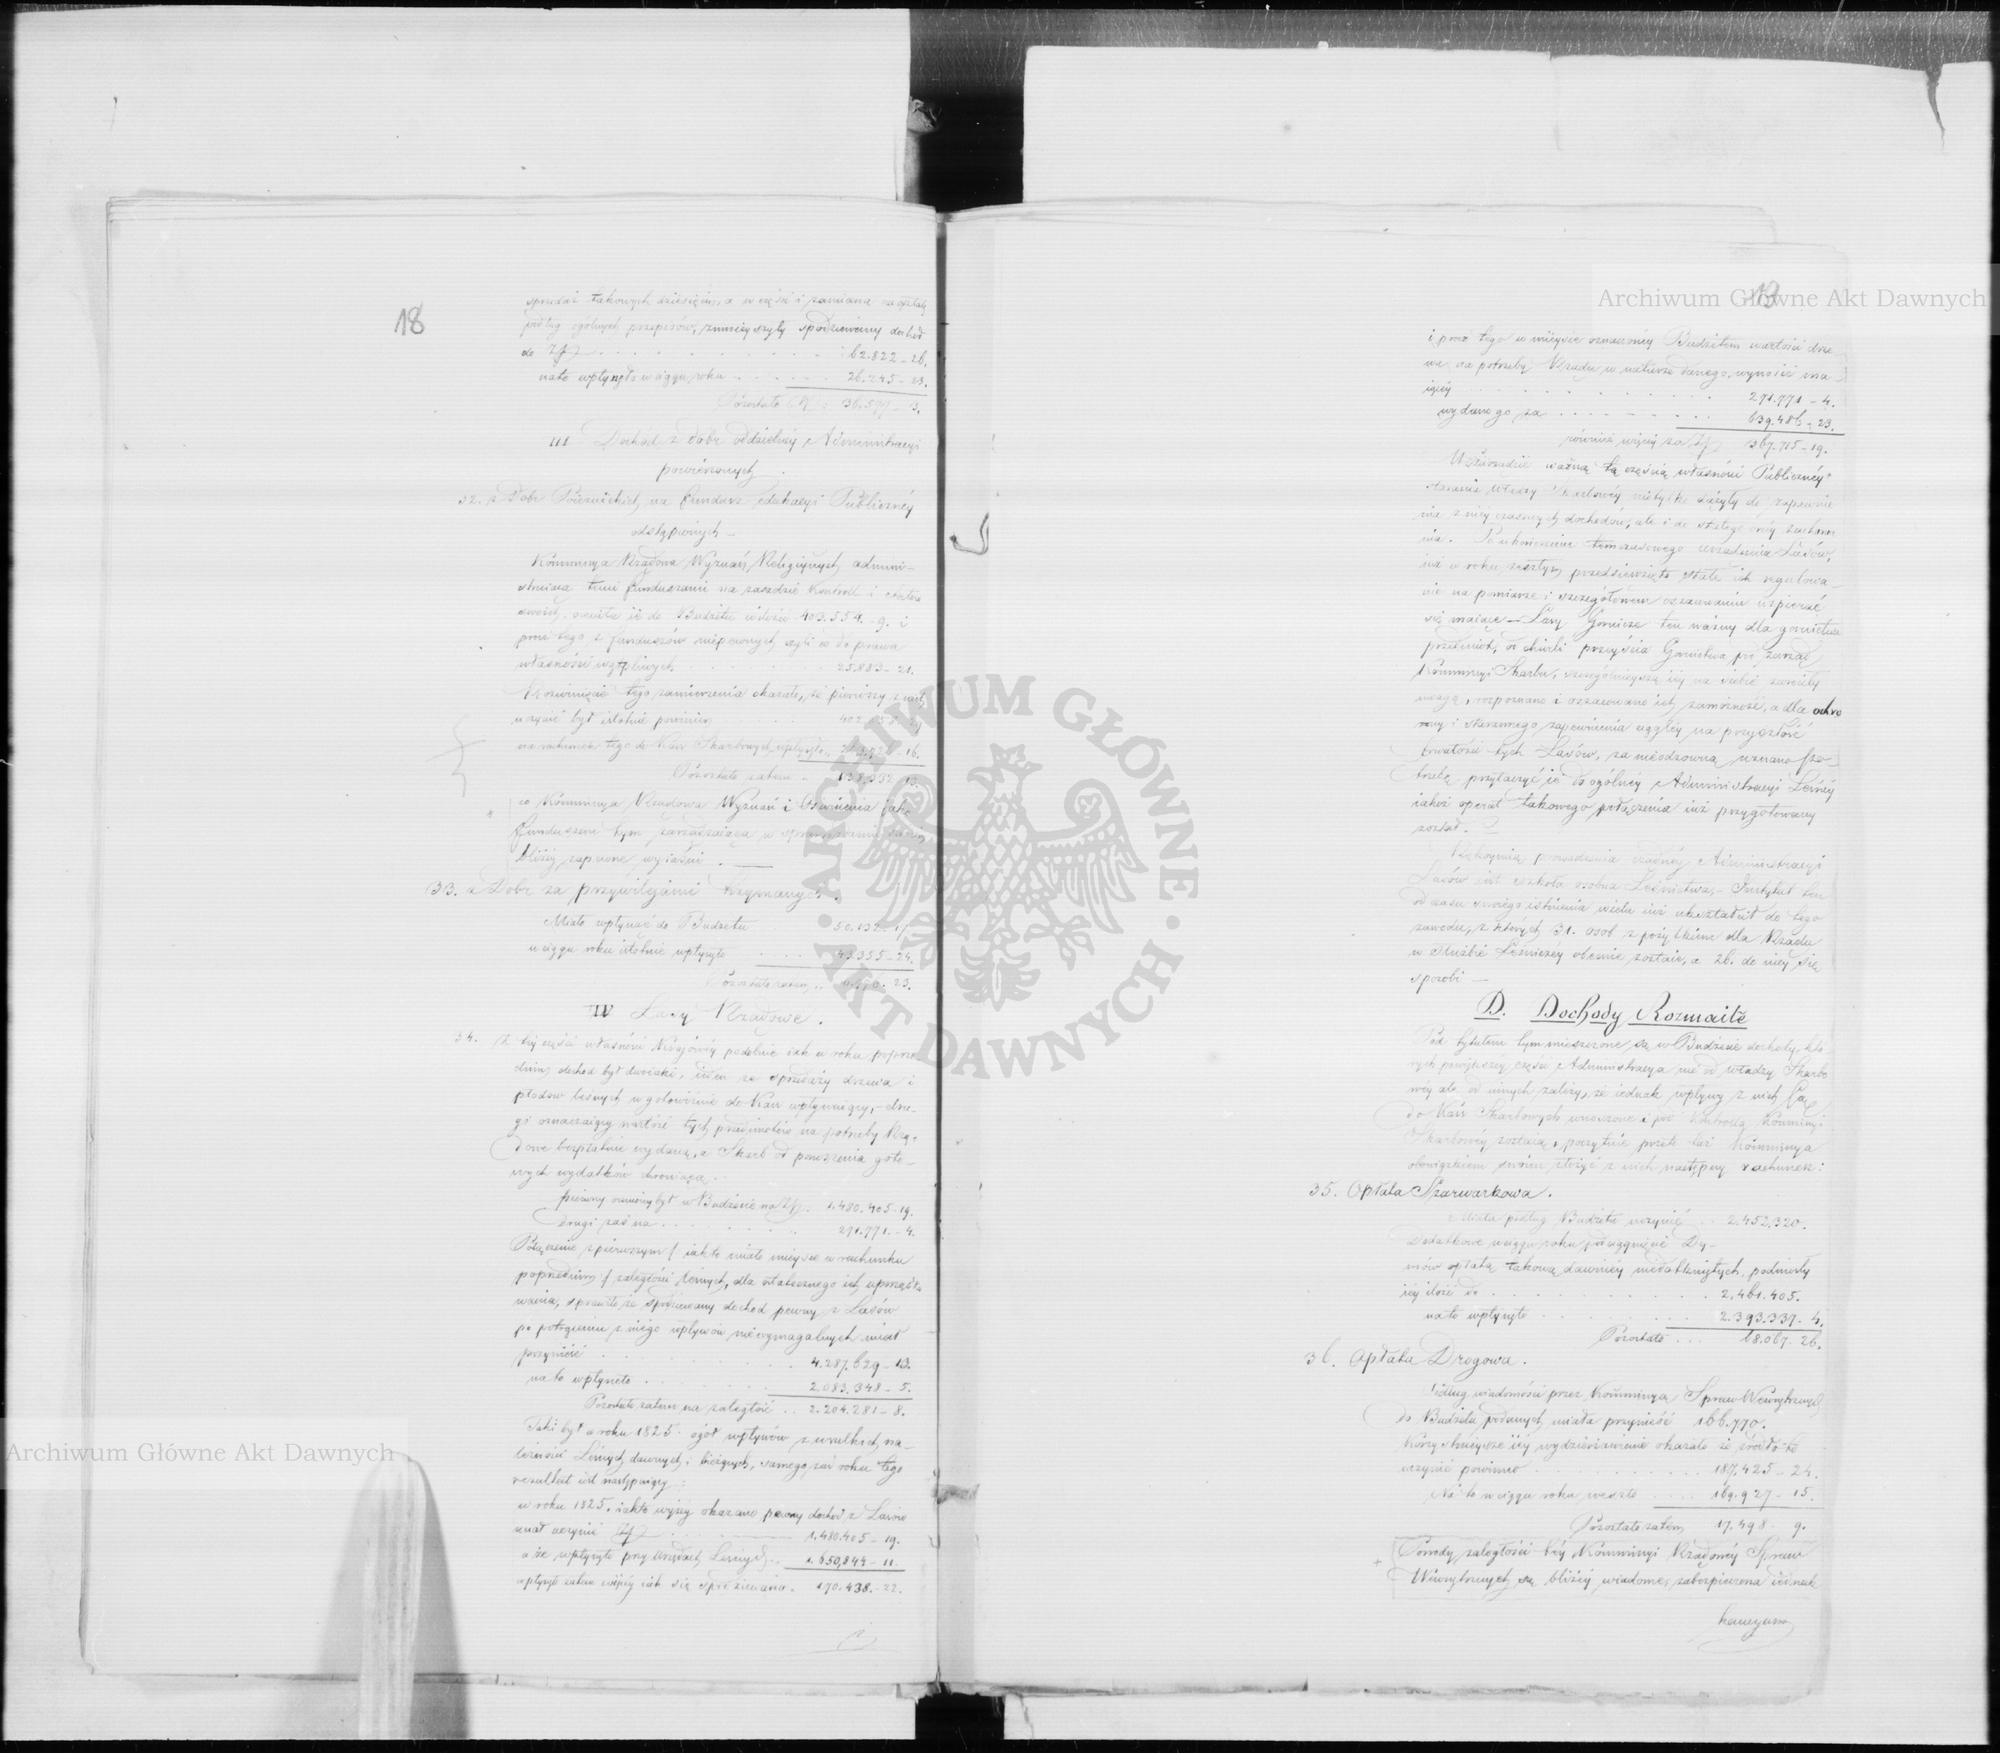 18
sprzedaż takowych dziesięcin, a w części i zamiana na opłatę
podług ogólnych przepisów, zmnieyszyły spodziewany dochod
do Zł. 62.822 - 26.
na to wpłynęło w ciągu roku 26.245 - 23.
Pozostało Zł. 36.577 - 3.
III Dochód z dobr oddzielney Administracyi
powierzonych.
32. z Dobr Poiezuickich na fundusz Edukacyi Publiczney
odstąpionych —
Kommissya Rządowa Wyznań Religiynych admini-
struiąca temi funduszami na zasadzie Kontroll i
podała ie do Budżetu w ilości 403.554. - 9. i
prócz tego z funduszów niepewnych czyli co do prawa
własności wątpliwych 25.883 - 21.
Rozwinięcie tego zamierzenia okazało, że pierwszy z nich
uczynić był istotnie powinien
na rachunek tego do Kass Skarbowych wpłynęło 16.
Pozostało zatem 138.332 - 13.
co Kommissya Rządowa Wyznań i Oświecenia jako
funduszem tym zarządzaiąca w sprawozdaniu swoiem
bliżey zapewne wyiaśni.
33. z Dobr za przywilejami trzymanych.
Miało wpłynąć do Budżetu 50.132 - 17
w ciągu roku istotnie wpłynęło 43.355 - 24.
Pozostało zatem 23.
IV Lasy Rządowe.
34. Z tey części własności Kraiowey podobnie iak w roku poprze-
dnim, dochod był dwoiaki, ieden ze sprzedaży drzewa i
płodów leśnych w gotowiźnie do Kass wpływaiący, - dru-
gi oznaczaiący wartość tych przedmiotów na potrzeby Rzą-
dowe bezpłatnie wydaną, a Skarb od ponoszenia goto-
wych wydatków chroniącą.
pierwszy oznaczony był w Budżecie na Zł. 1.480.405 - 19.
Drugi zaś na 271.771. - 4.
Połączenie z pierwszym /: iak to miało mieysce w rachunku
poprzednim :/ zaległości leśnych, dla ostatecznego ich uprząt-
wania, sprawiło że spodziewany dochod pewny z Lasów
po potrąceniu z niego wpływów niewymagalnych miał
przynieść 4.287.629 - 13.
na to wpłynęło 2.083.348 - 5.
Pozostało zatem na zaległość 2.204.281 - 8.
Taki był w roku 1825. ogół wpływów z wszelkich na-
leżności Leśnych dawnych i bieżących, samego zaś roku tego
rezultat iest następuiący:
w roku 1825. iak to wyżey okazano pewny dochod z Lasów
miał uczynić Zł. 1.480.405 - 19.
a że wpłynęło przy Urzędach Leśnych 1.650.844 - 11.
wpłynęło zatem więcey iak się spodziewano. 170.438. - 22.
13
i prócz tego w mieysce oznaczoney Budżetem wartości drze-
wa na potrzeby Rządu w naturze danego, wynosić ma-
iącey 271.771 - 4.
wydanego za 639.486 - 23.
również więcey za Zł. 367.715 - 19.
ważną tą częścią własności Publiczney
starania Władzy Skarbowey nietylko dążyły do zapewnie-
nia z niey czasowych dochodów, ale i do stałego oney zachowa-
nia. Po ukończeniu tymczasowego urządzenia Lasów,
iuż w roku zeszłym przedsięwzięto stałe ich regulowa-
nie na pomiarze i szczegółowem oszacowaniu wspierać
się maiące. — Lasy Gornicze ten ważny dla gornictwa
przedmiot, od chwili przeyścia Gornictwa pod zarząd
Kommissyi Skarbu, szczególnieyszą iey na siebie zwróciły
uwagę, rozpoznano i oszacowano ich zamożność, a dla ochro-
ny i starannego zapewnienia ciągłey na przyszłość
trwałości tych Lasów, za nieodzowną uznano po-
trzebę przyłączyć ie do ogólney Administracyi Leśney
iakoż operat takowego połączenia iuż przygotowany
został.
Rękoymią prowadzenia Administracyi
Lasów iest szkoła osobna Leśnictwa, - Instytut ten
od czasu swoiego istnienia wielu iuż ukształcił do tego
zawodu, z których 31. osob z pożytkiem dla Rządu
w służbie Leśniczey obecnie zostaie, a 26. do niey się
sposobi —
D. Dochody Rozmaite
Pod tytułem tym mieszczone są w Budżecie dochody, któ-
rych powiększey części Administracya nie od władzy Skarbo-
wey ale od innych zależy, że iednak wpływy z nich są
do Kass Skarbowych wnoszone i pod kontrollą Kommissyi
Skarbowey zostaią, poczytuie przeto też Kommissya
obowiązkiem swoiem złożyć z nich następny rachunek:
35. Opłata Szarwarkowa.
Miała podług Budżetu uczynić 2.452.320.
Dodatkowe w ciągu roku pociągnięcie Dy-
mów opłatą takową dawniey niedotkniętych, podniosły
iey ilość do 2.461.405.
na to wpłynęło 2.393.337 - 4.
Pozostało 68.067. 26.
36. Opłata Drogowa.
Podług wiadomości przez Kommissyą Spraw Wewnętrznych
do Budżetu podanych, miała przynieść 166.770.
Korzystnieysze iey wydzierżawienie okazało że źródło to
uczynić powinno 187.425 - 24.
Na to w ciągu roku weszło 169.927 - 15.
Pozostało zatem 17.498 - 9.
Powody zaległości tey Kommissyi Rządowey Spraw
Wewnętrznych są bliżey wiadome, zabezpieczona iednak
Archiwum Główne Akt Dawnych
Archiwum Główne Akt Dawnych
ARCHIWUM GŁÓWNE • AKT DAWNYCH •